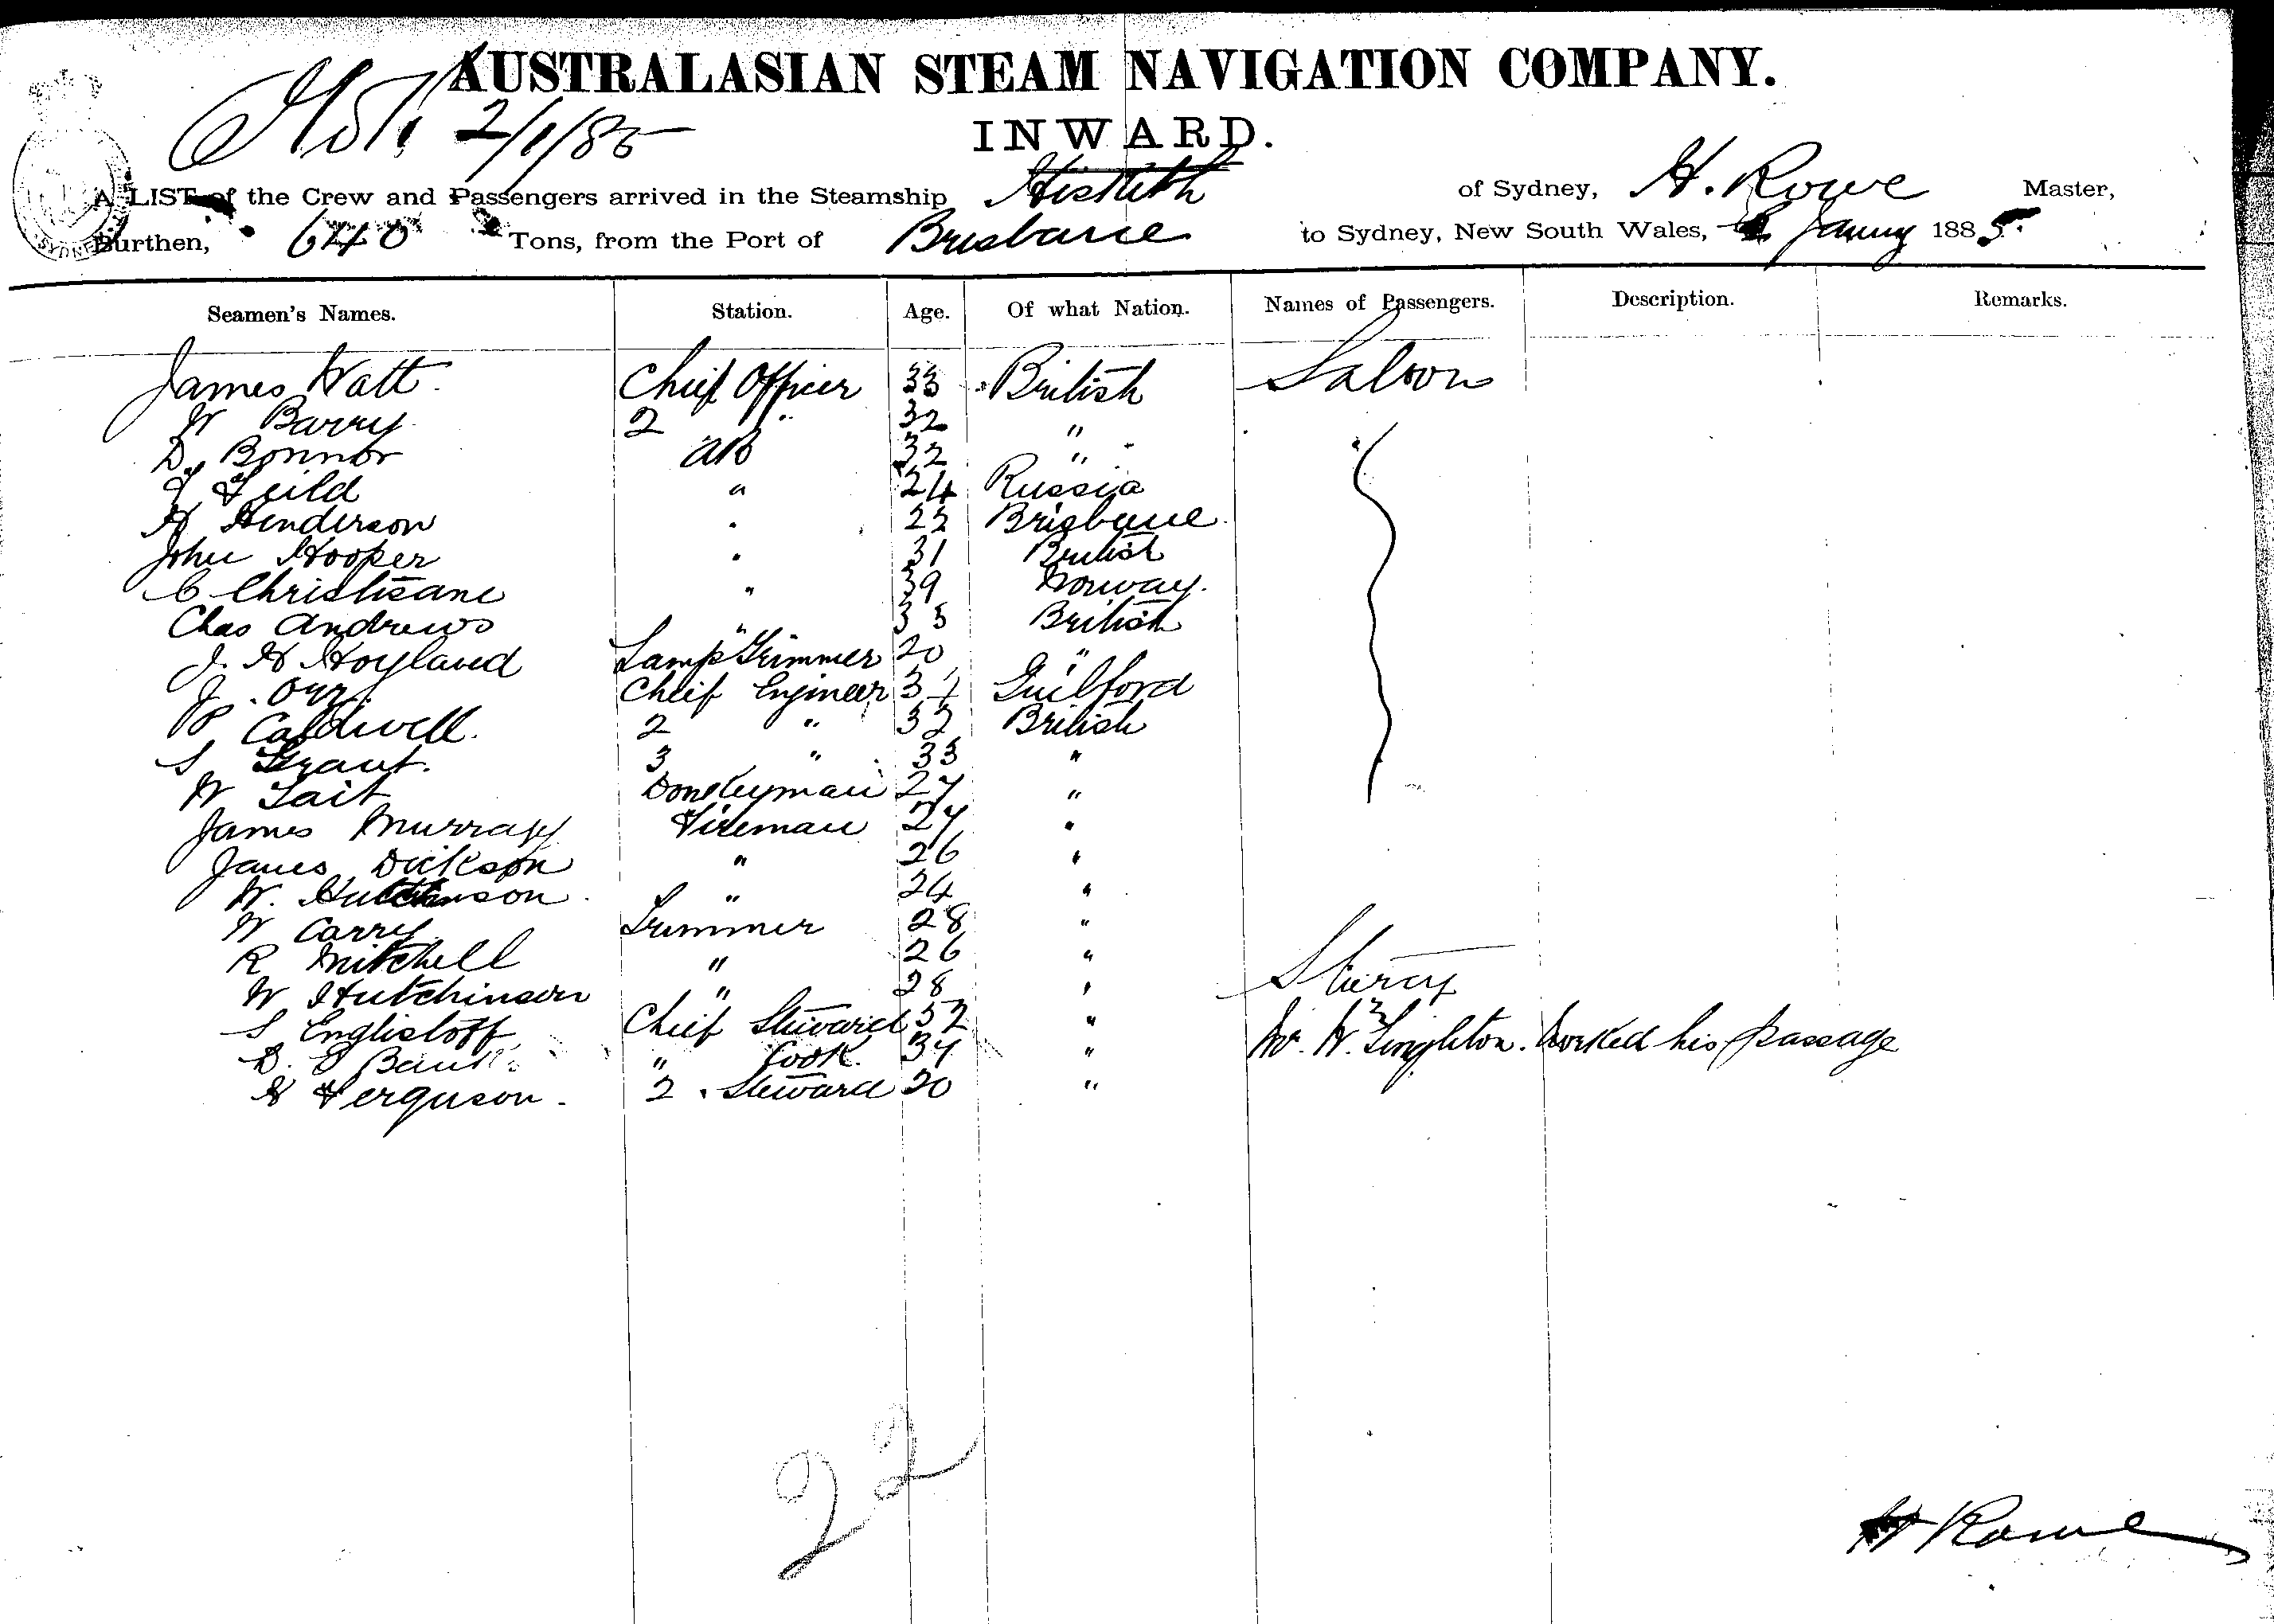 AUSTRALASIAN STEAM NAVIGATION COMPANY.
2/1/85
INWARD.
A LIST of the Crew and Passengers arrived in the Steamship Hesketh of Sydney, H. Rowe Master,
Burthen, 640 Tons, from the Port of Brisbane to Sydney, New South Wales, 2 Jany 1885.
Seamen's Names. Station. Age. Of what Nation. Names of Passengers. Description. Remarks.
James Watt. Chief Officer 33 British Saloon
W Barry 2 " 32 "
D. Bonnor AB 32 "
Feild " 24 Russia
H Henderson " 22 Brisbane
John Hooper " 31 British
C Christisane " 39 Norway.
Chas Andrews " 33 British
J. H Hoyland Lamp Trimmer 20 "
J. Orr. Chief Engineer 34 Guilford
P Caldwell. 2 " 32 British
S Grant. 3 " 33 "
W Tait Donkeyman 27 "
James Murray Fireman 27 "
James Dickson " 26 "
W. Hutchinson " 24 "
W Carry Trimmer 28 "
R Mitchell " 26 "
W Hutchinson " 28 " Sterag
S Englistoff Chief Steward 32 "
D. E Bank " Cook. 37 " Mr. Wm Singleton. Worked his passage
H Ferguson. 2. Steward 20 "
22
H Rowe